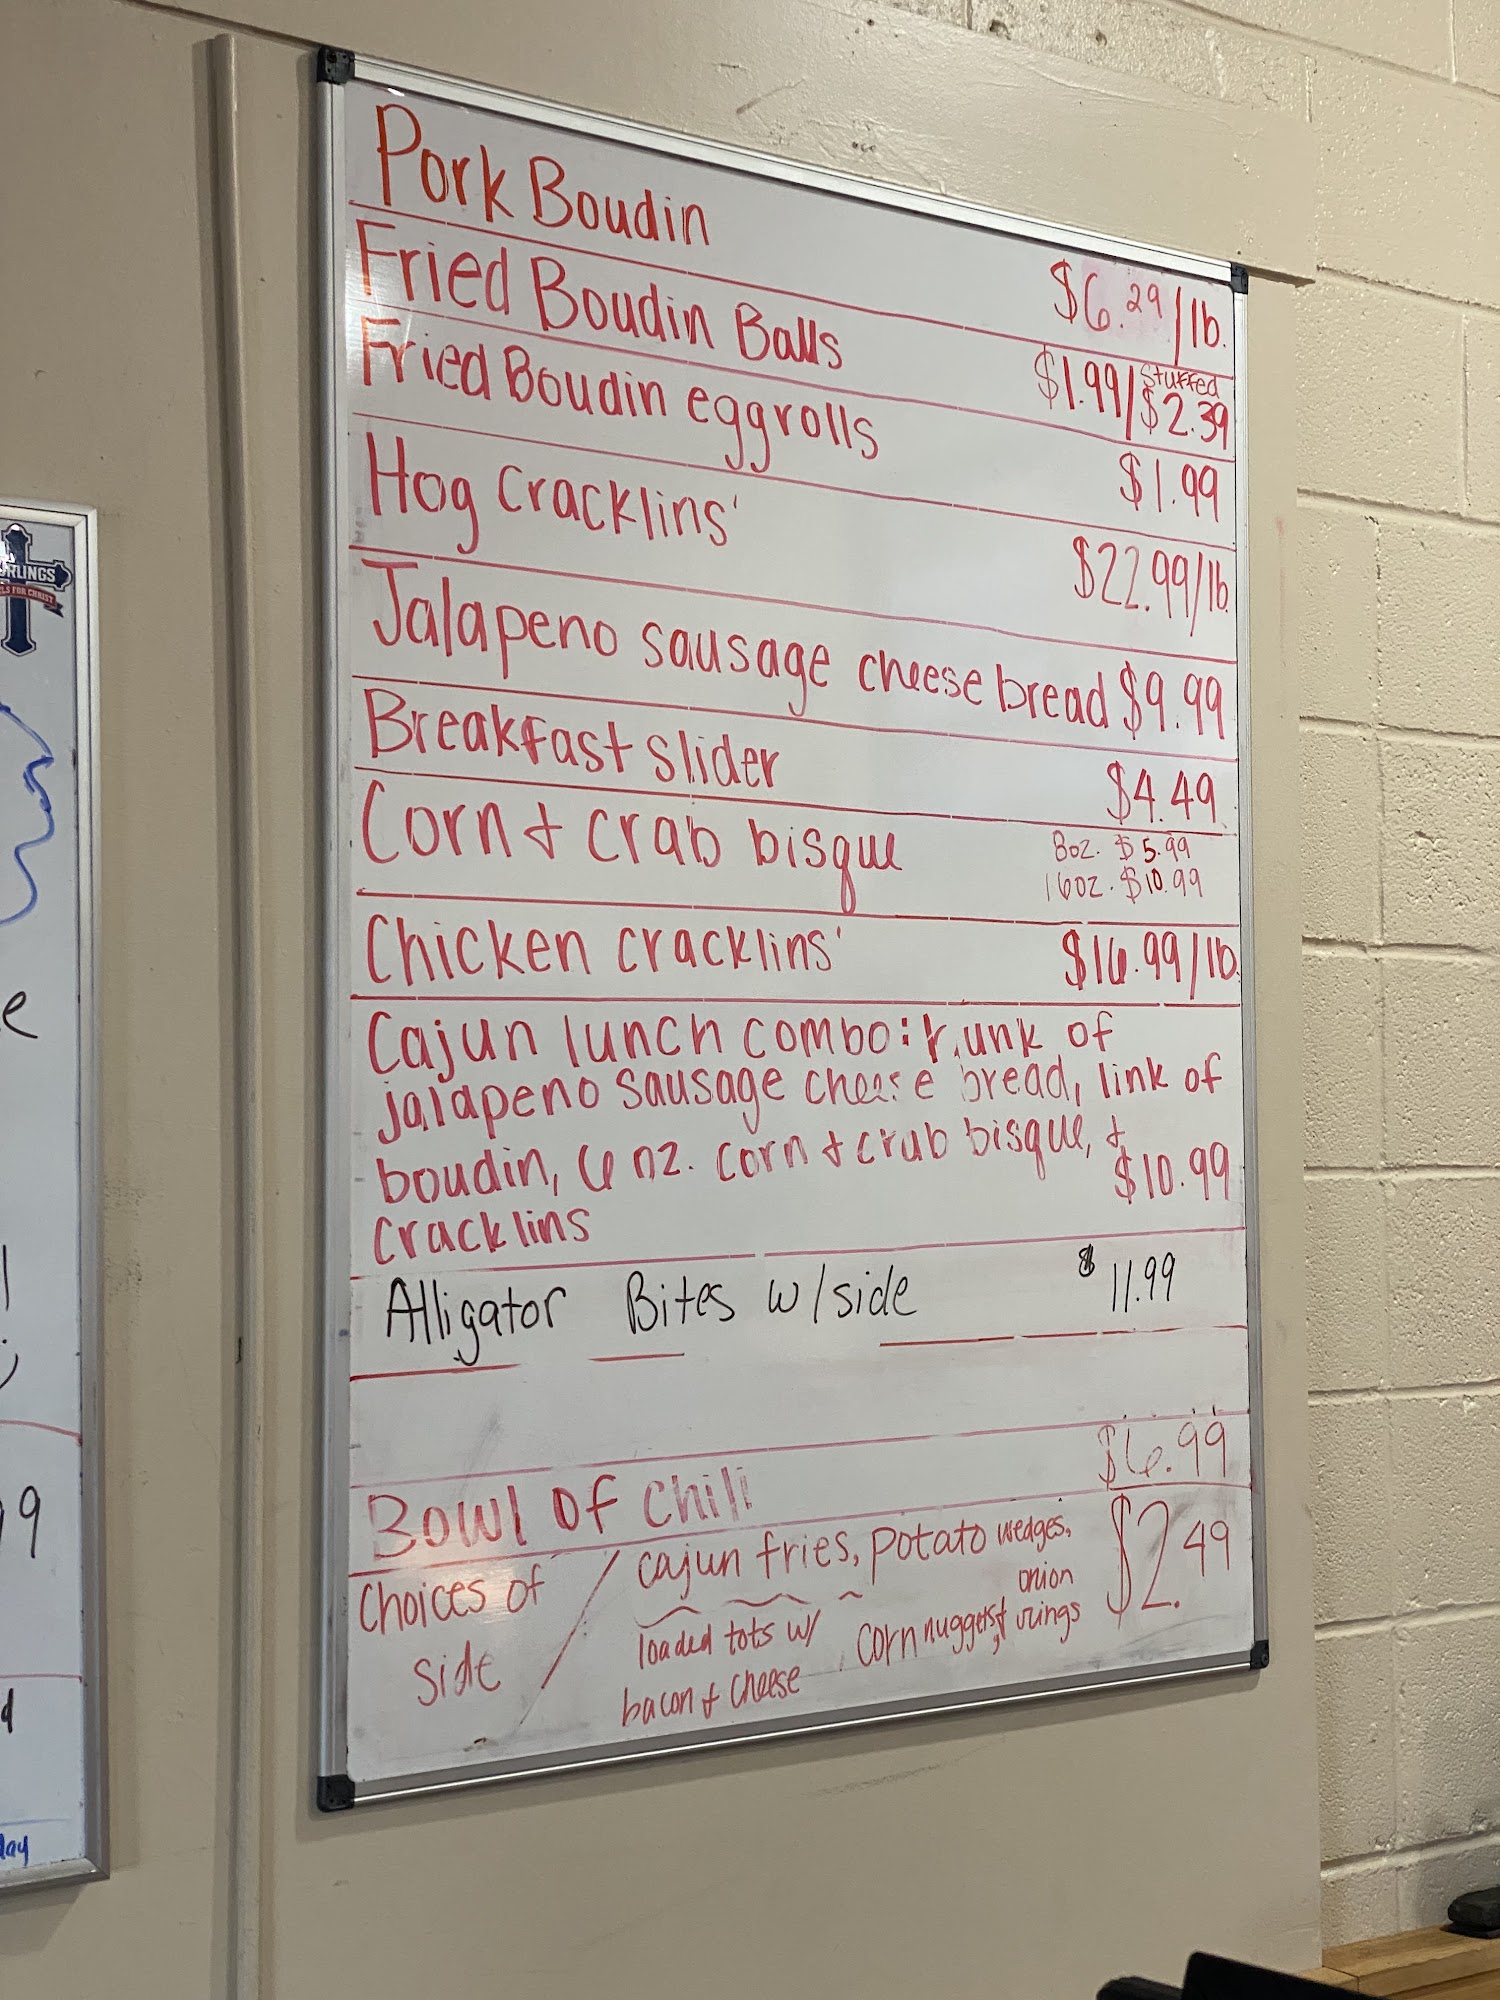 Pork Boudin $6.29/lb.
Fried Boudin Balls $1.99/ Stuffed $2.39
Fried Boudin eggrolls $1.99
Hog cracklins' $22.99/lb.
Jalapeno sausage cheese bread $9.99
Breakfast slider $4.49
Corn & crab bisque 8oz. $5.99
16oz. $10.99
Chicken cracklins' $16.99/lb.
Cajun lunch combo: of
jalapeno sausage cheese bread, link of
boudin, 6 oz. corn & crab bisque, &
cracklins $10.99
Alligator Bites w/side $11.99
Bowl of chili $6.99
choices of side / cajun fries, potato wedges, $2.49
loaded tots w/ bacon & cheese, corn nuggets, & onion rings
RLINGS
LS FOR CHRIST
e
9
day